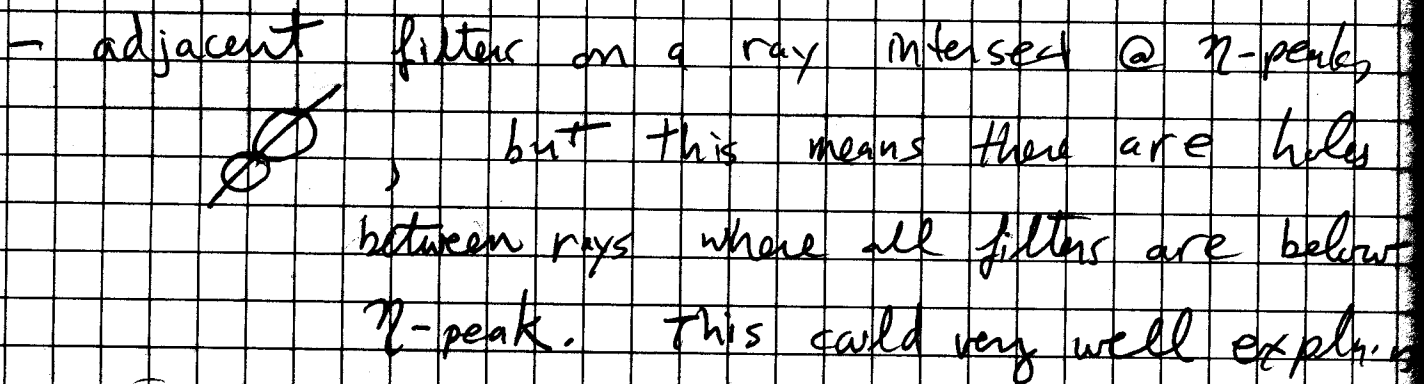 - adjacent filters on a ray intersect @ η-peak,
, but this means there are holes
between rays where all filters are below
η-peak. This could very well explain